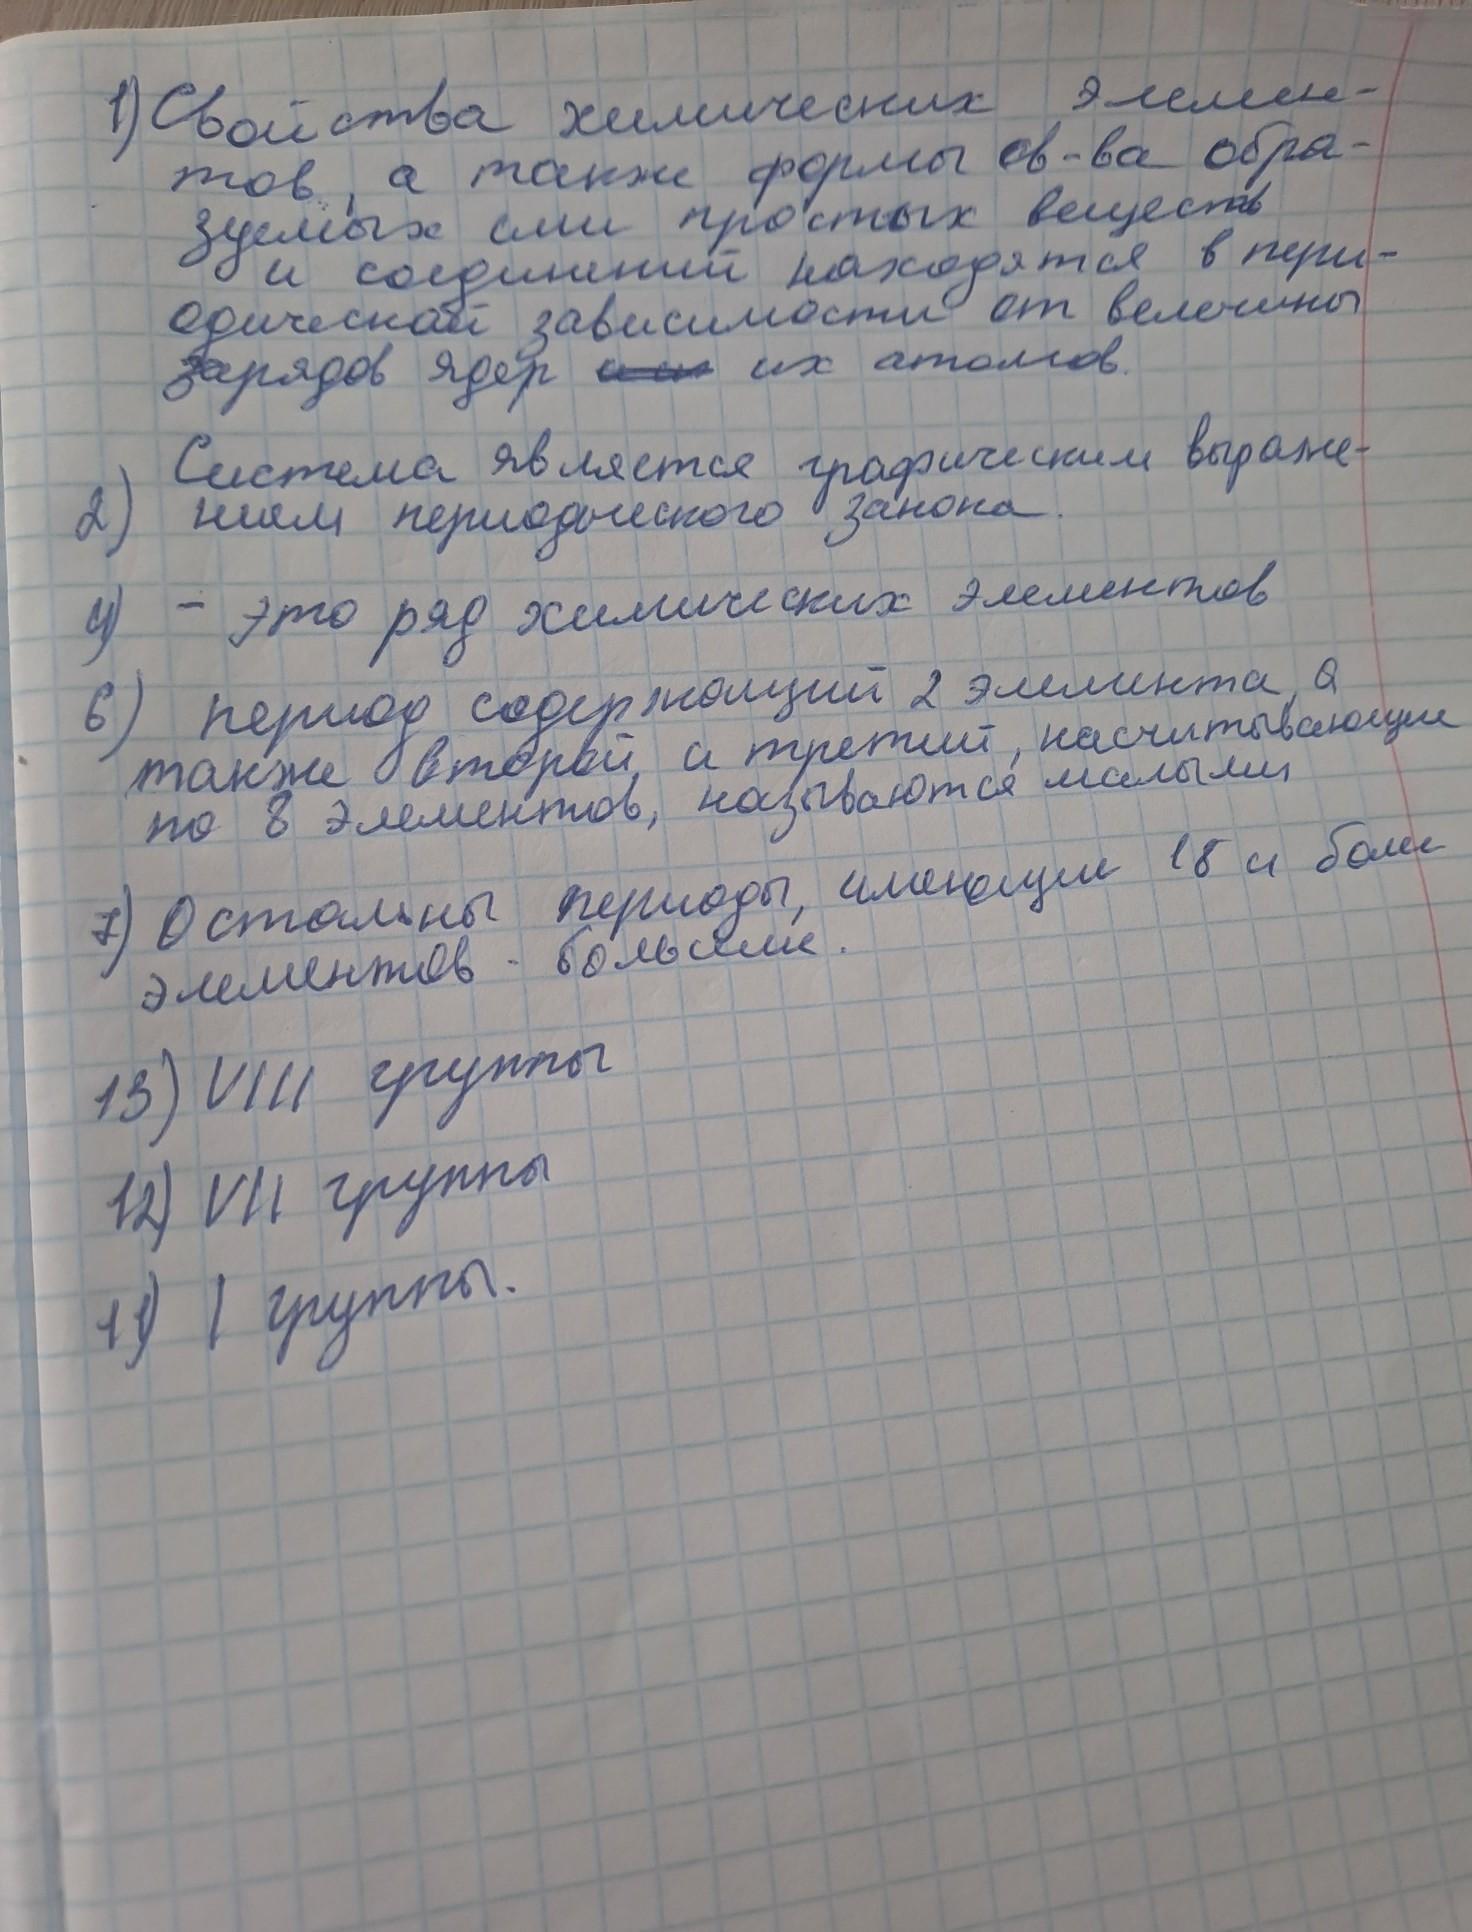 1) Свойства химических элемен-
тов, а также формы св-ва обра-
зуемых ими простых веществ
и соединений находятся в пери-
одической зависимости от величины
зарядов ядер их атомов.
Система является графическим выраже-
2) нием периодического закона.
4) - это ряд химических элементов
6) период содержащий 2 элемента, а
также второй и третий, насчитывающие
по 8 элементов, называются малыми
7) Остальны периоды, имеющие 18 и более
элементов - большие.
13) VIII группы
12) VII группы
11) I группы.